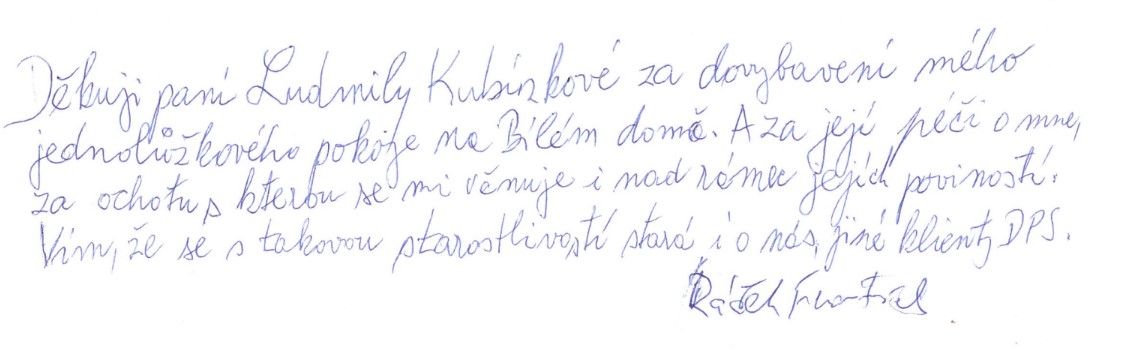 Děkuji paní Ludmily Kubínkové za dovybavení mého
jednolůžkového pokoje na Bílém domě. A za její péči o mne,
za ochotu s kterou se mi věnuje i nad rámec jejích poviností.
Vím, že se s takovou starostlivostí stará i o nás, jiné klienty DPS.